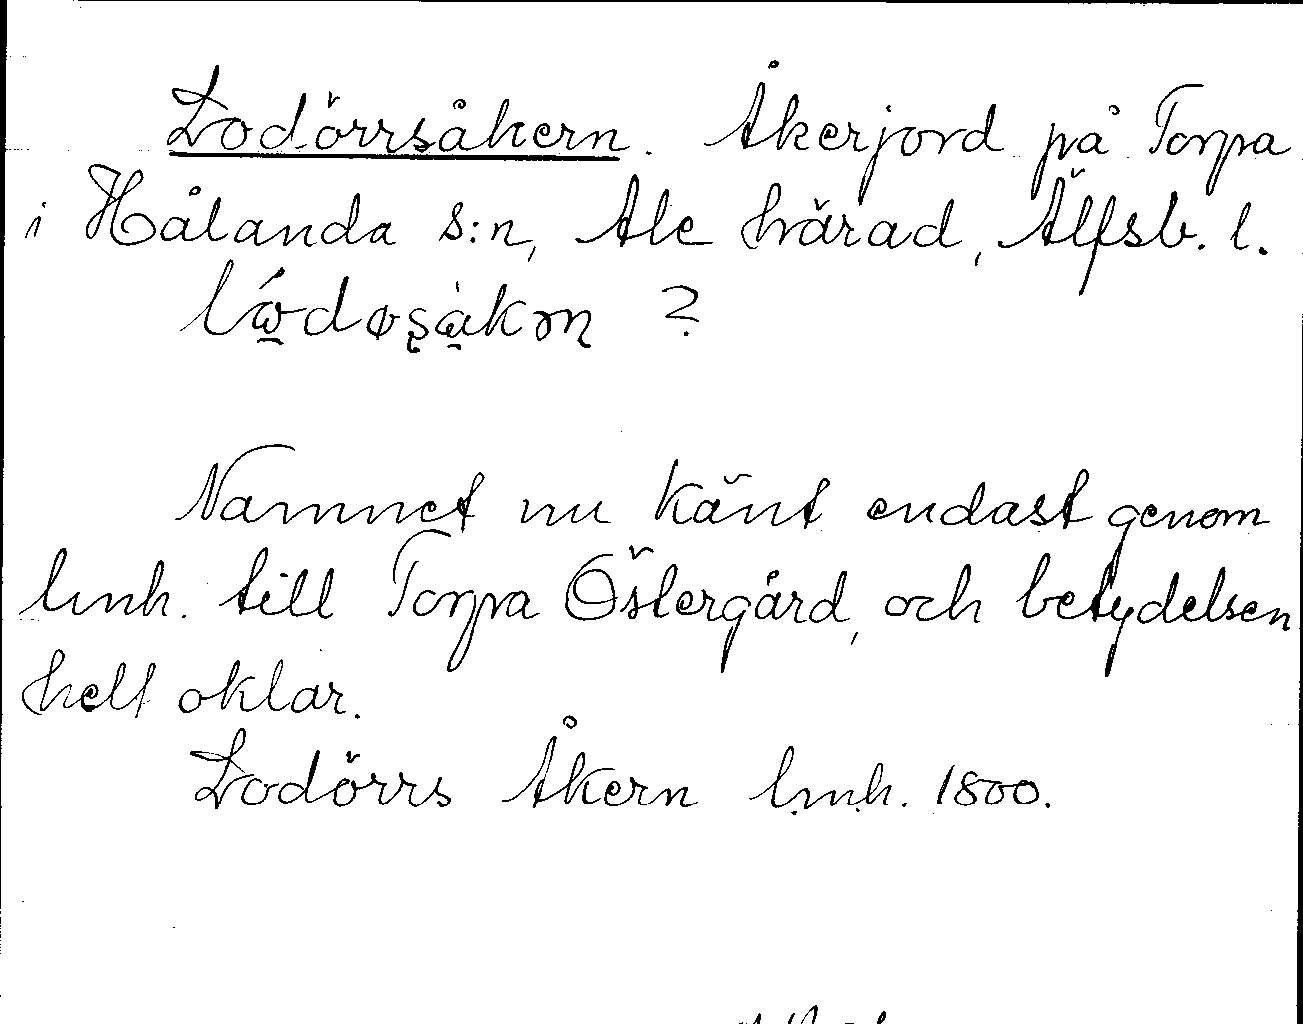 Lodörrsåkern. Åkerjord på Torpa
i Hålanda s:n, Ale härad, Älfsb. l.
?
Namnet nu känt endast genom
lmh. till Torpa Östergård, och betydelsen
helt oklar.
Lodörrs Åkern lmh. 1800.